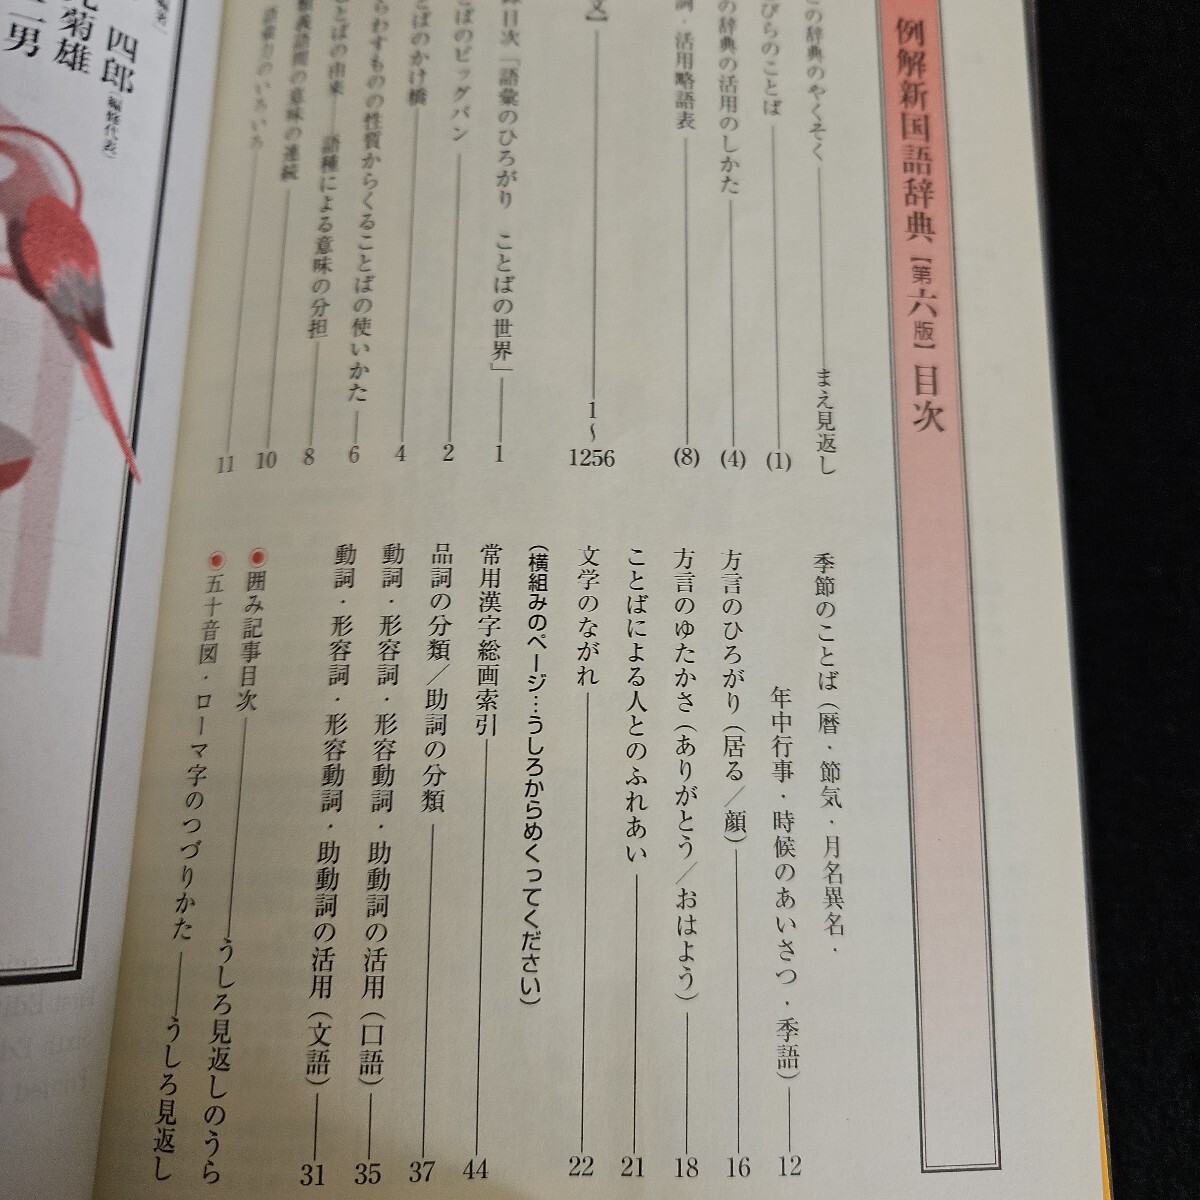 例解新国語辞典【第六版】目次
の辞典のやくそく まえ見返し
びらのことば (1)
の辞典の活用のしかた (4)
詞・活用略語表 (8)
文】 1～1256
録目次「語彙のひろがり ことばの世界」 1
とばのビッグバン 2
とばのかけ橋 4
らわすものの性質からくることばの使いかた 6
とばの由来 語種による意味の分担 8
類義語間の意味の連続 10
語彙力のいろいろ 11
季節のことば(暦・節気・月名異名・
年中行事・時候のあいさつ・季語) 12
方言のひろがり(居る/顔) 16
方言のゆたかさ(ありがとう/おはよう) 18
ことばによる人とのふれあい 21
文学のながれ 22
(横組みのページ…うしろからめくってください)
常用漢字総画索引 44
品詞の分類/助詞の分類 37
動詞・形容詞・形容動詞・助動詞の活用(口語) 35
動詞・形容詞・形容動詞・助動詞の活用(文語) 31
囲み記事目次 うしろ見返しのうら
五十音図・ローマ字のつづりかた うしろ見返し
四郎(編修代表)
菊雄
二男